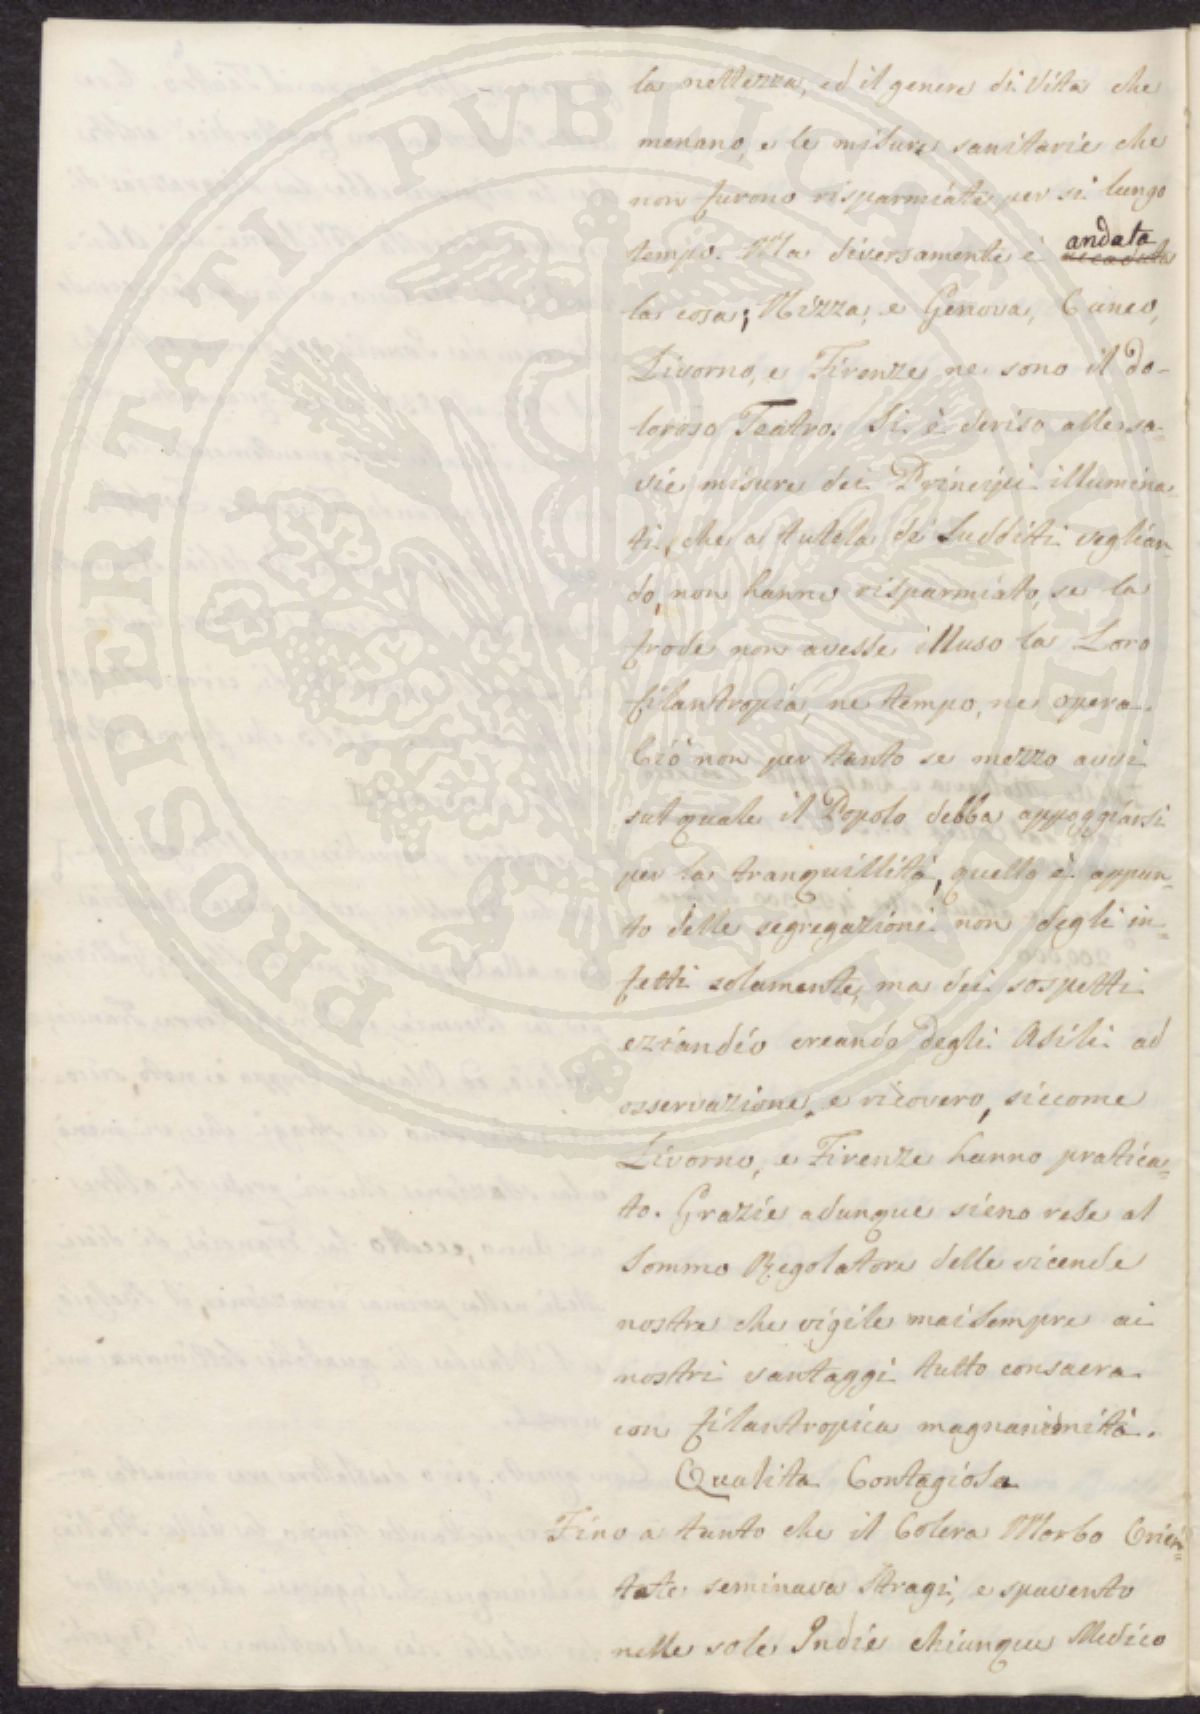 la nettezza, ed il genere di Vita che
menano, e le misure sanitarie che
non furono risparmiate per si lungo
tempo. Ma diversamente è andata
la cosa; Nizza, e Genova, Cuneo,
Livorno, e Firenze ne sono il do-
loroso Teatro. Si è deriso alle sa=
vie misure dei Principi illumina
ti, che a tutela de Sudditi veglian=
do, non hanno risparmiato, se la
frode non avesse illuso la Loro
filantropia, ne tempo, ne opera.
Ciò non per tanto se mezzo avvi
sul quale il Popolo debba appoggiarsi
per la tranquillità, quello è appun=
to delle segregazioni non degli in=
fetti solamente, ma dei sospetti
eziandio creando degli Asili ad
osservazione, e ricovero, siccome
Livorno, e Firenze hanno pratica=
to. Grazie adunque sieno rese al
Sommo Regolatore delle vicende
nostre che vigile maisempre ai
nostri vantaggi tutto consacra
con filantropica magnanimità.
Qualita Contagiosa
Fino a tanto che il Colera Morbo Orien=
tale seminava Stragi, e spavento
nelle sole Indie chiunque Medico
PROSPERITATI PUBLICAE AUGENDAE